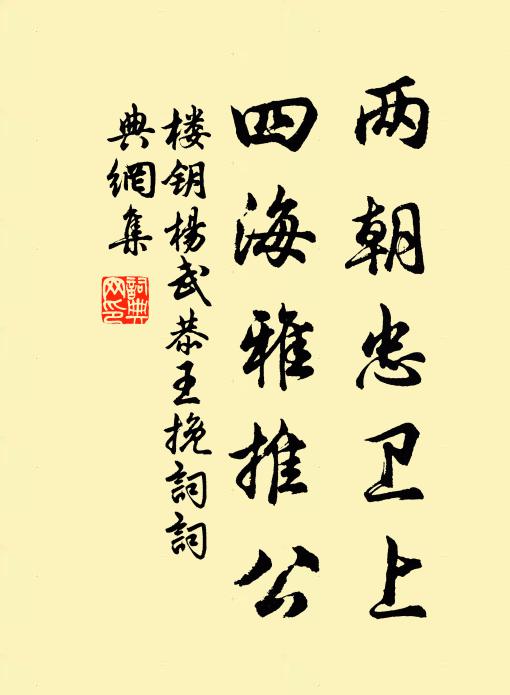 两朝忠卫上
四海雅推公
楼钥杨武恭王挽词詞
典網集
詞典网印